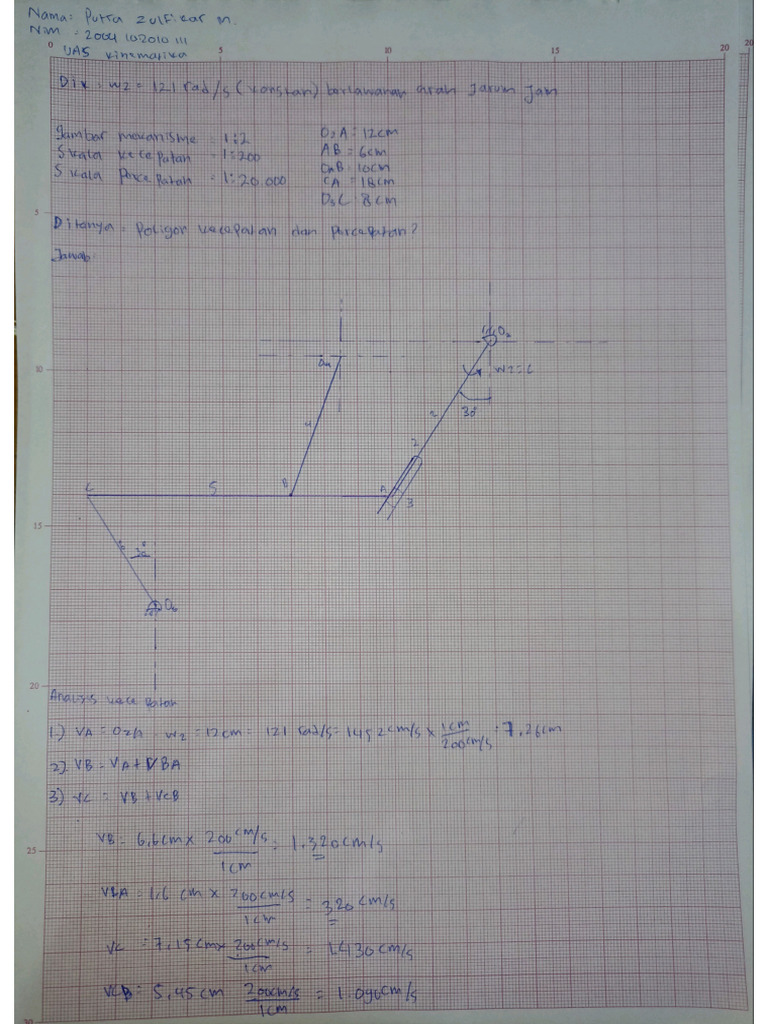 Nama: Putra Zulfikar M.
Nim = 2004102010111
UAS Kinematika
0 5 10 15 20 20
Dik : W2 = 121 rad/s (konstan) berlawanan arah Jarum Jam
Gambar mekanisme : 1:2
Skala kecepatan : 1:200
Skala Percepatan : 1:20.000
O2A : 12cm
AB = 6cm
O4B : 10cm
CA = 18cm
O6C : 8cm
5
Ditanya = Poligon kecepatan dan percepatan?
Jawab
O4
O2
10
W2=
30°
2
4
2
C
5
B
A
3
15
6
30°
O6
20
Analisis kecepatan
1.) VA = O2A . W2 = 12cm = 121 rad/s = 1452cm/s x 1cm/200cm/s = 7,26cm
2). VB = VA + VBA
3) VC = VB + VCB
VB = 6,6cm x 200cm/s / 1cm = 1.320cm/s
25
VBA = 1,6 cm x 200cm/s / 1cm = 320 cm/s
VC = 7,15cm x 200cm/s / 1cm = 1.430cm/s
VCB = 5,45cm 200cm/s / 1cm = 1.090cm/s
30